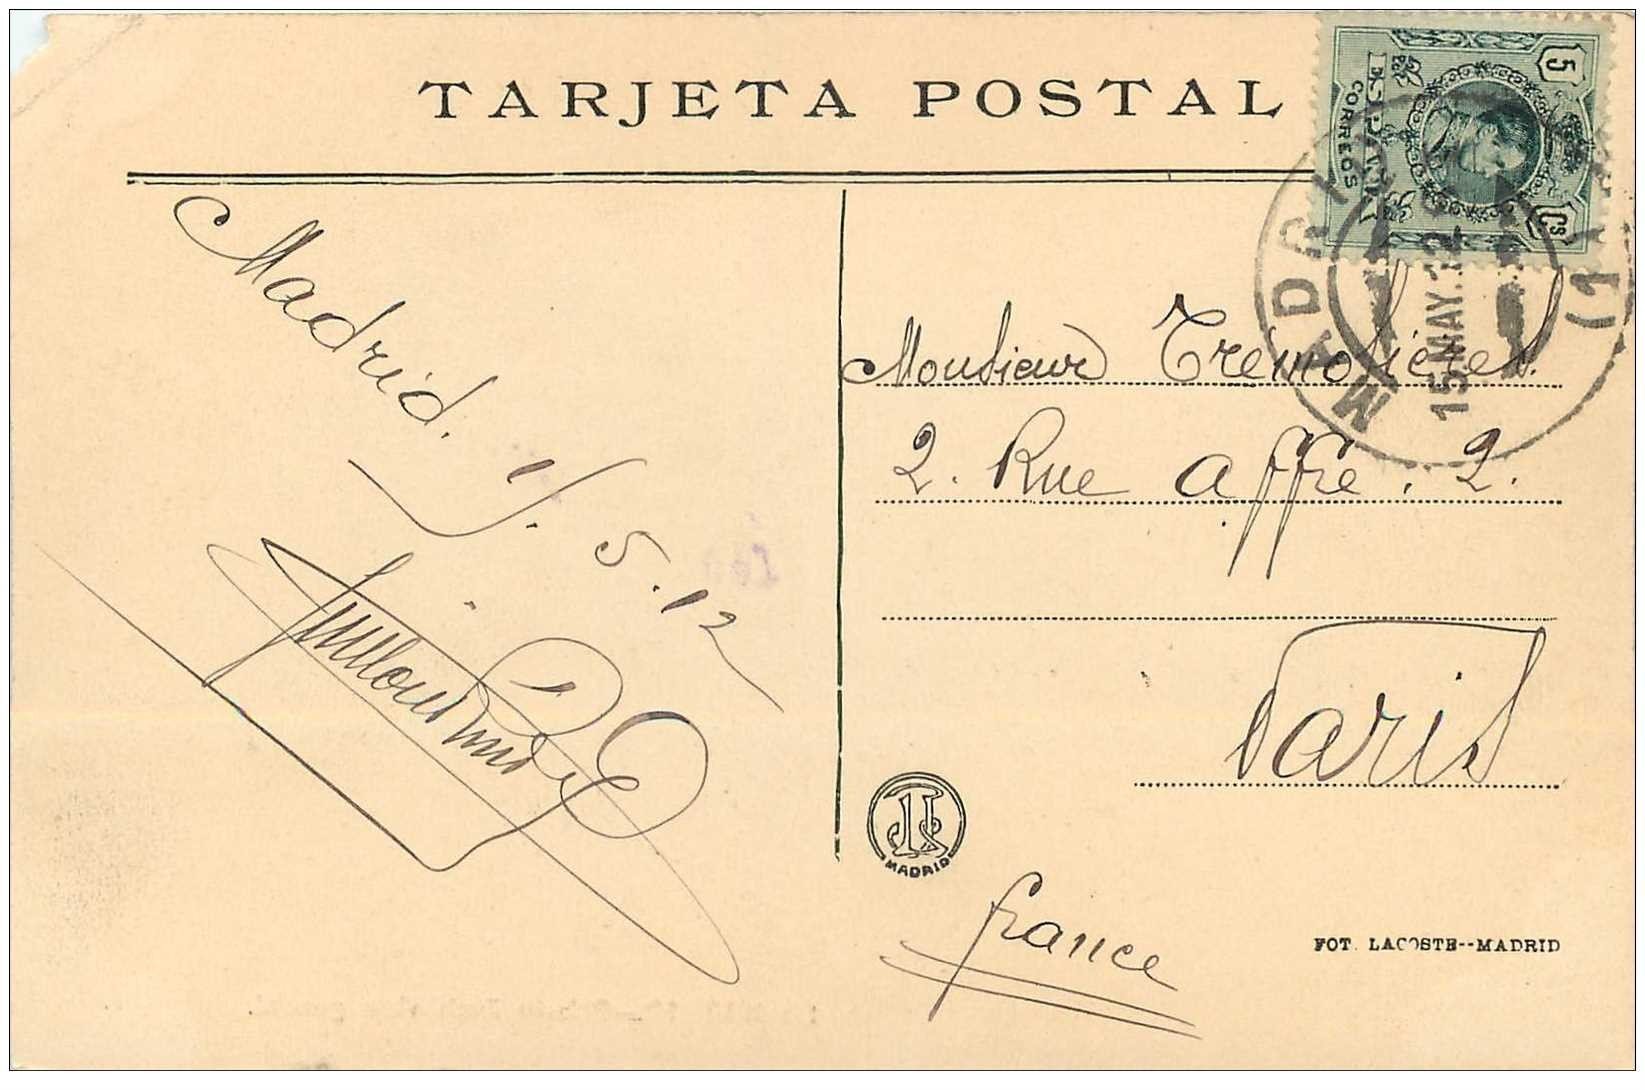 TARJETA POSTAL
5 Cs
CORREOS
ESPAÑA
MADRID
15 MAY.12
(1
Madrid. 1/. 5.12
Monsieur Tremolières.
2. Rue Affre. 2.
Paris
France
MADRID
FOT. LACOSTE--MADRID